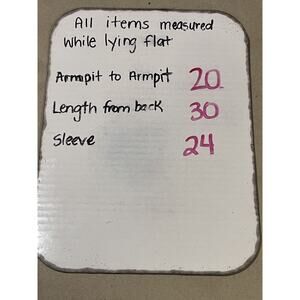 All items measured
while lying flat
Armpit to Armpit 20
Length from back 30
Sleeve 24